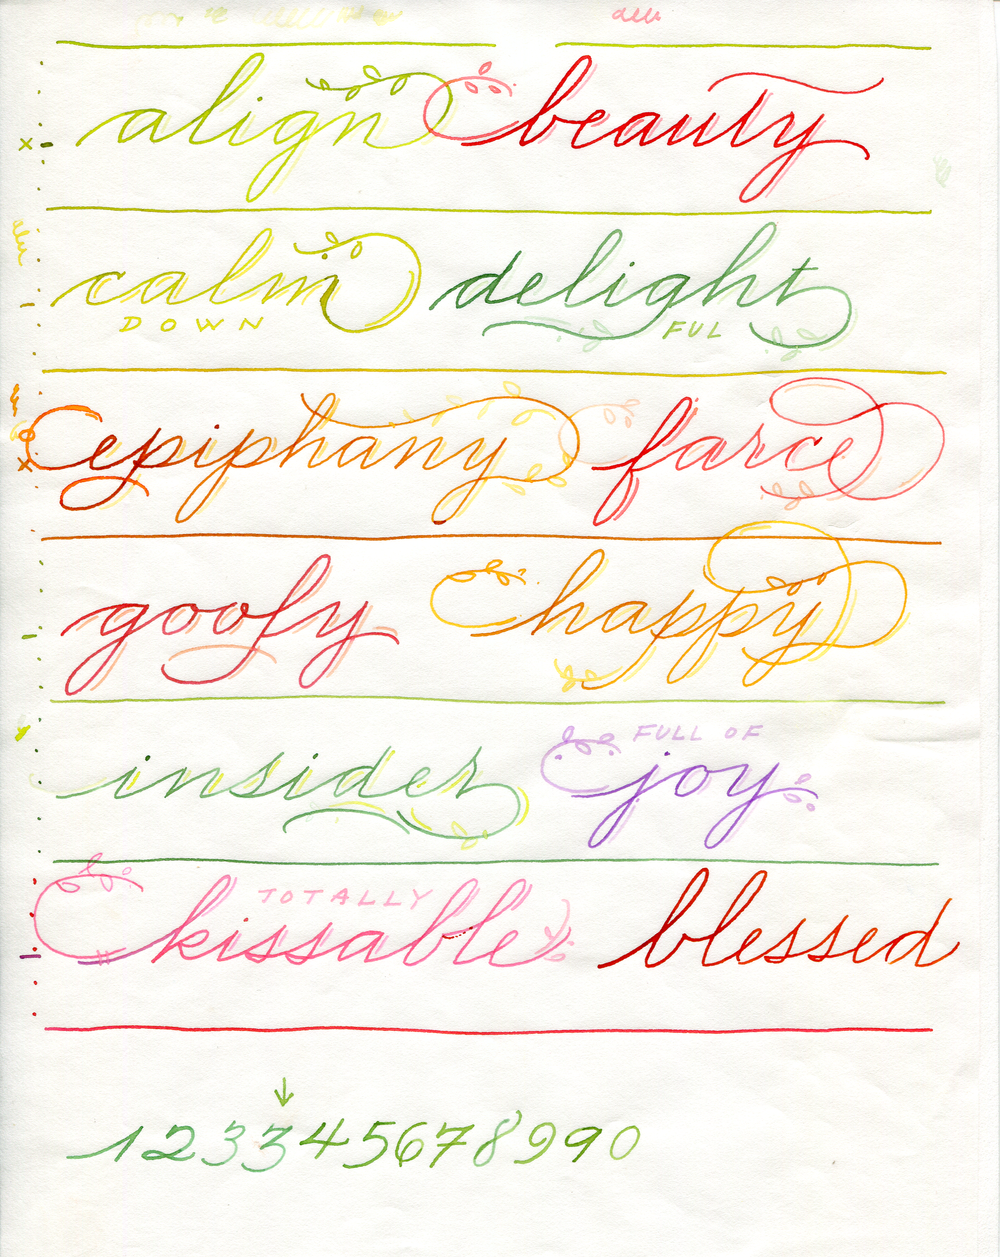 align beauty
calm delight
DOWN FUL
epiphany farce
goofy happy
FULL OF
insider joy
TOTALLY
kissable blessed
123345678990